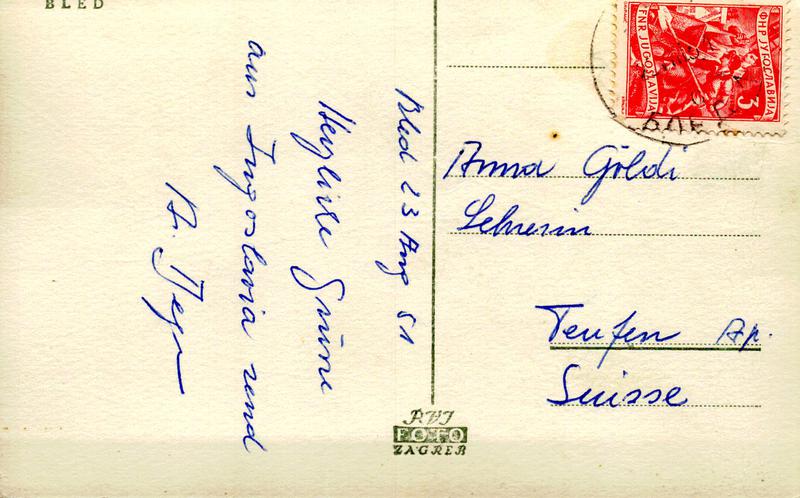 BLED
Bled 23 Aug 51
Herzliche Grüsse
aus Jugoslavia send
FNR JUGOSLAVIJA
ФНР ЈУГОСЛАВИЈА
3
БЛЕД
Anna Göldi
Lehrerin
Teufen Ap.
Suisse
FOTO
ZAGREB